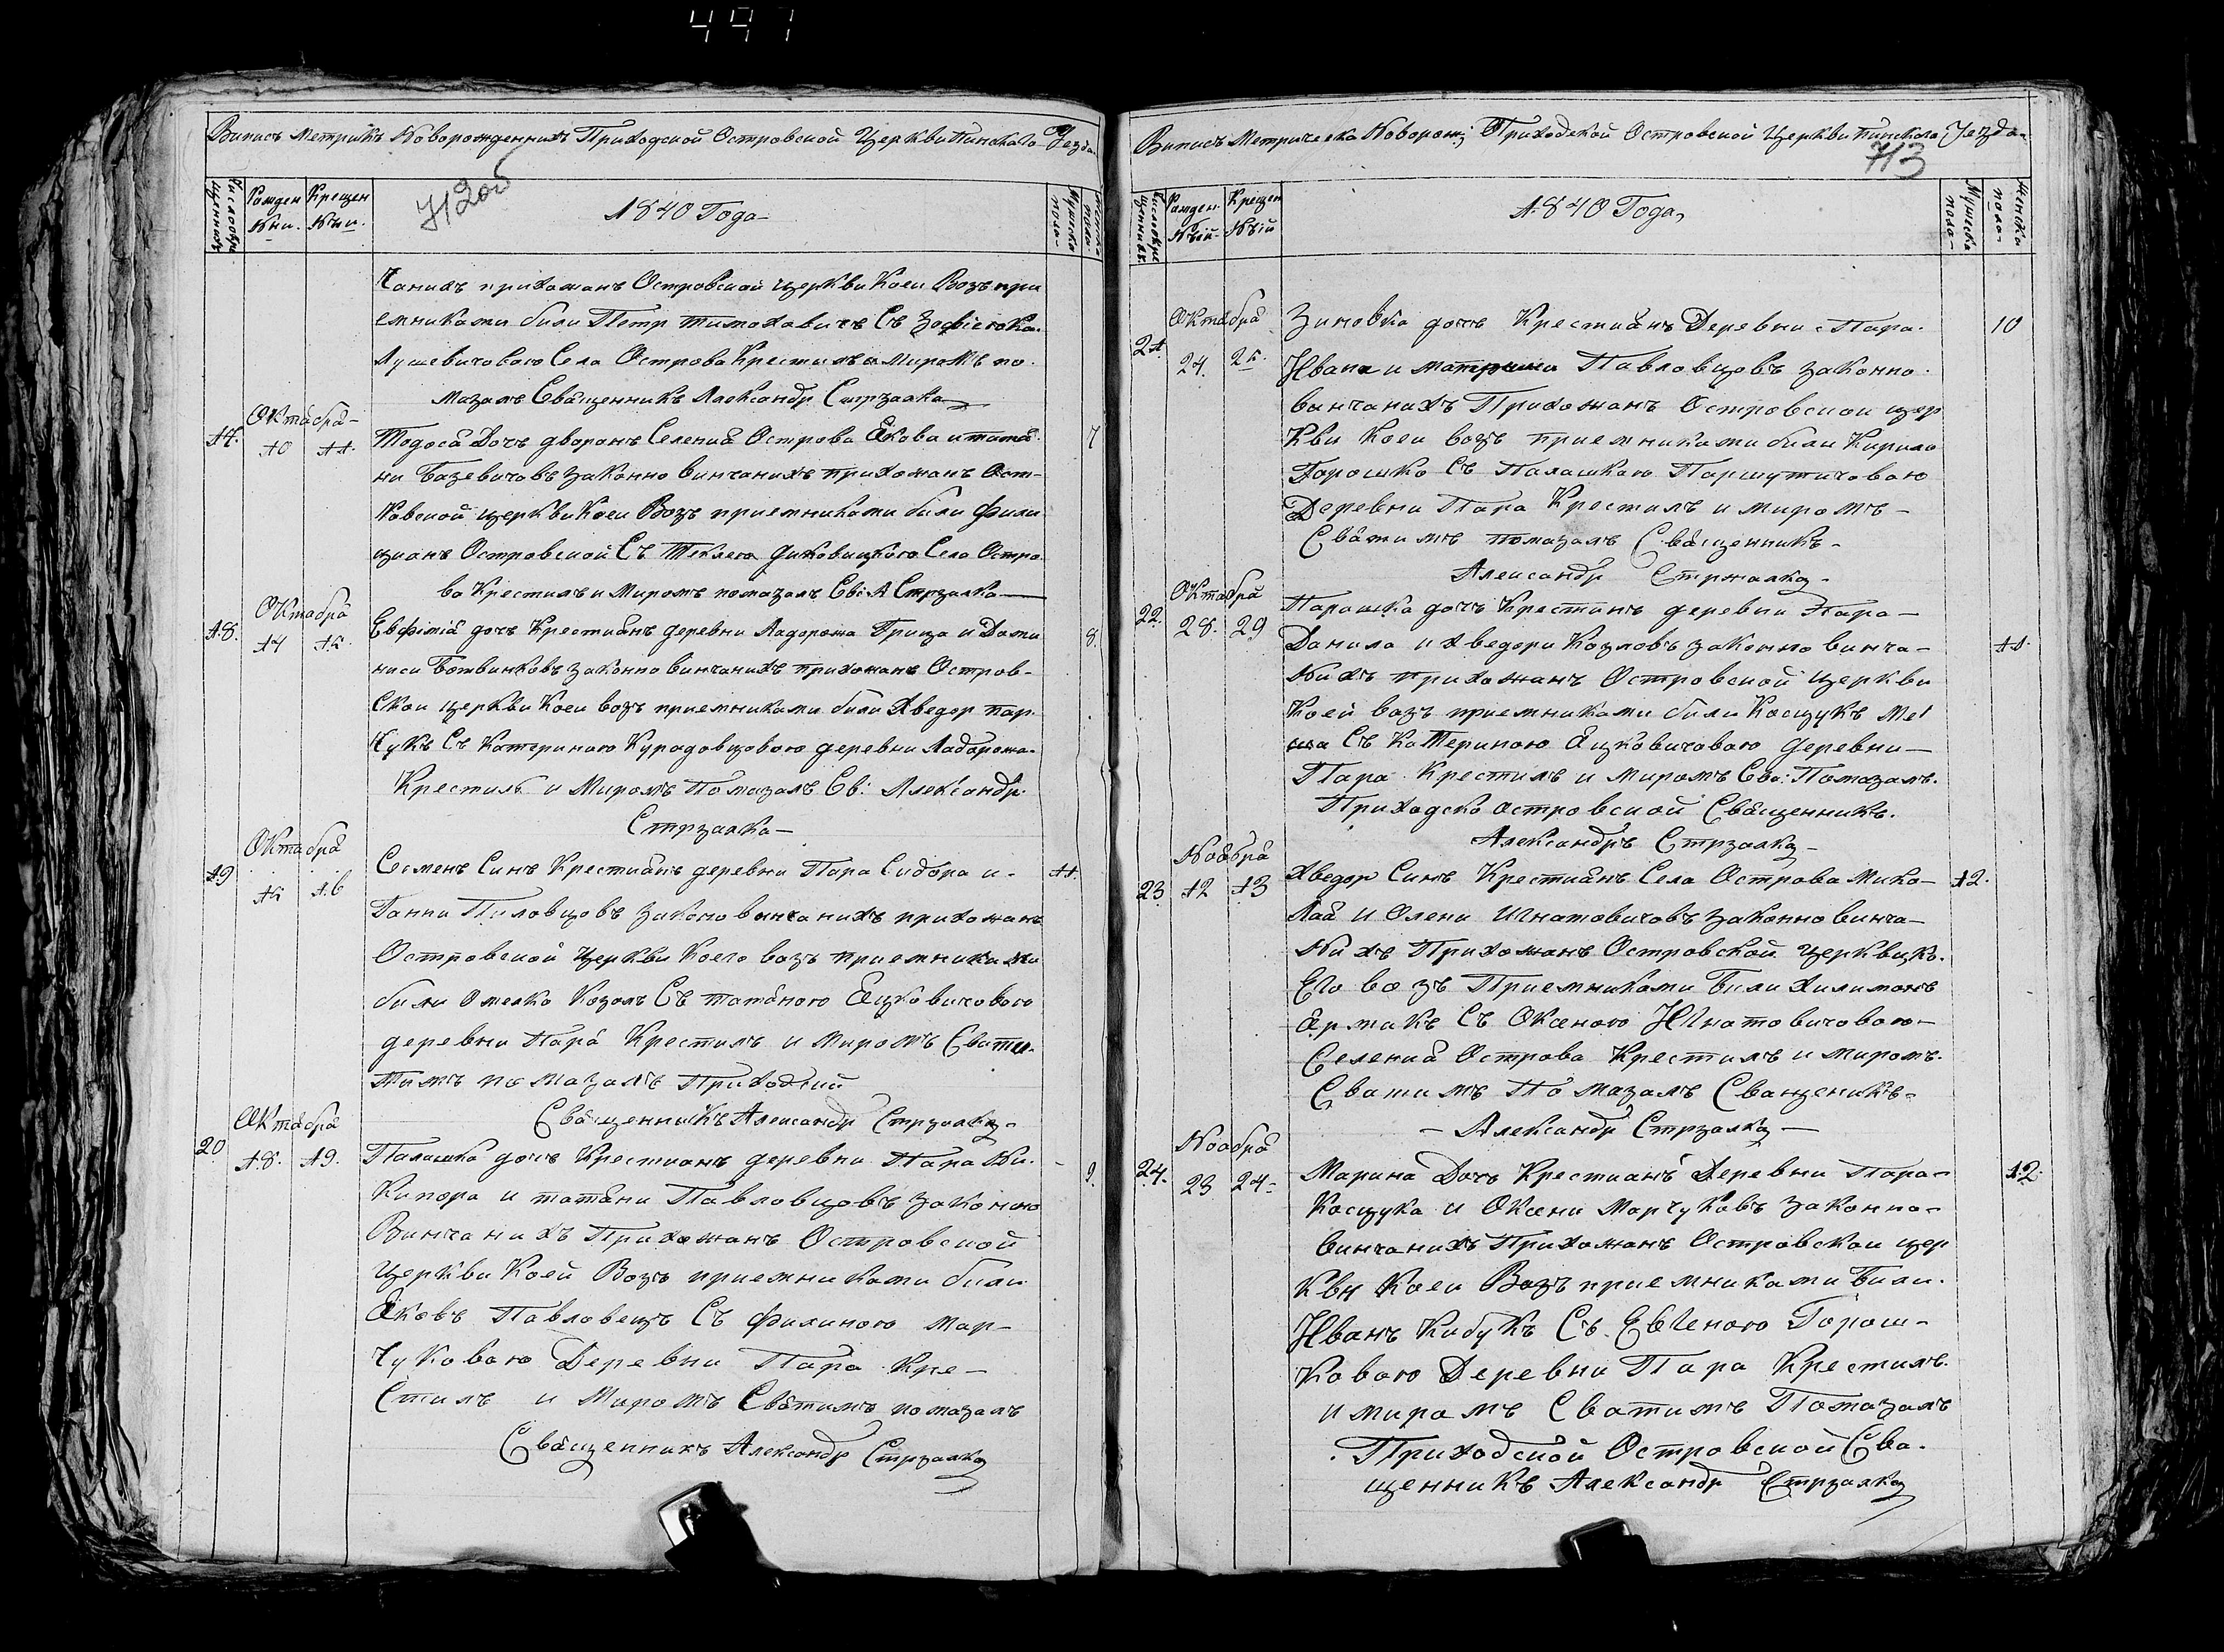 497
Випись Метрикъ Новорожденнихъ Приходской Островской Церкви Пинскаго Уезда
712об
Рожден
Крещен
1840 Года
Мужска
пола
чанихъ прихожанъ Островской церкви Коеи Возъ при
емниками були Петр Тимохович Съ Зофіею Ка
лушевичовою Села Острова Крестилъ и Миромъ по
мазалъ Свäщенникъ Александр Стрзалка
17.
Октäбрä
10 11.
Тодосä Дочъ дворянъ Селениä Острова Äкова и татä
7
ни Базевичовъ законно винчанихъ прихожанъ Ост-
ровской церкви Коеи Возъ приемниками були Фили
циянъ Островской Съ Теклею Диковицкою Села Остро
ва Крестилъ и Миромъ помазалъ Свi: А Стрзалка
18.
Октабрä
14 15.
Евфіміä дочъ Крестиäнъ деревни Ладорожа Грица и Доми
8.
ниси Ботвинковъ законно винчанихъ прихожанъ Остров-
Скои церкви Коеи возъ приемниками були Хведор пар
чукъ Съ Катериною Курадовцовою деревни Ладорожа
Крестилъ и Миромъ Помазалъ Св: Александр
Стрзалка
19
Октäбрä
15 16
Семенъ Синъ Крестиäнъ деревни Пара Сидора и
11.
Ганни Пиловцовъ законо винчанихъ прихожанъ
Островской церкви Коего возъ приемниками
були Омелко Козолъ Съ татäною Äцковичовою
деревни Пара Крестилъ и Миромъ Свати
тимъ помазалъ Приходский
Свäщенникъ Александр Стрзалка
20
Октäбрä
18. 19.
Палашка дочъ Крестианъ деревни Пара Ни
9.
Кипора и татäни Павловцовъ законно
Винчанихъ Прихожанъ Островской
церкви Коей Возъ приемниками були
Äковъ Павловецъ Съ Филиною Мар-
чуковою Деревни Пара Кре-
Стилъ и Миромъ Свäтимъ помазалъ
Свäщенникъ Александр Стрзалка
Випись Метрическа Новорож: Приходской Островской Церкви Пинскаго Уезда
713
Рожден
Крещен
1840 Года
Мужска
пола
Женска
пола
21
Октäбрä
24. 25.
Зиновка дочъ Крестиäнъ Деревни Пара
10
Ивана и Матруни Павловцовъ законно
винчанихъ Прихожанъ Островской цер
Кви Коеи возъ приемниками були Кирило
Горошко Съ Палашкою Паршутичовою
Деревни Пара Крестилъ и миромъ
Свäтимъ помазалъ Свäщенникъ
Александр Стржалка
22.
Октäбрä
28. 29
Парашка дочъ Крестиäнъ деревни Пара
Данила и Хведори Козловъ законно винча-
11.
нихъ прихожанъ Островской церкви
Коей возъ приемниками були Косцукъ Ме
Съ Катериною Äцковичовою деревни
Пара Крестилъ и миромъ Сва: Помазалъ
Приходско Островской Свäщенникъ
Александръ Стрзалка
23
Ноäбрä
12 13
Хведор Синъ Крестиäнъ Села Острова Мико-
12.
лаä и Олени Игнатовичовъ законно винча-
нихъ Прихожанъ Островской церквик.
Его возъ Приемниками Були Хилимонъ
Äрмакъ Съ Оксеною Игнатовичовою
Селениä Острова Крестилъ и миромъ
Сватимъ Помазалъ Сванценикъ
Александр Стрзалка
24.
Ноабрä
23 24
Марина Дочъ Крестианъ Деревни Пара
12.
Косцука и Оксени Марчуковъ законно
винчанихъ Прихожанъ Островской цер
Кви Коеи Возъ приемниками Були
Иванъ Кибукъ Съ Евгеною Горош-
Ковою Деревни Пара Крестилъ
и миромъ Сватимъ Помазалъ
Приходской Островской Сва-
щенникъ Александр Стрзалка